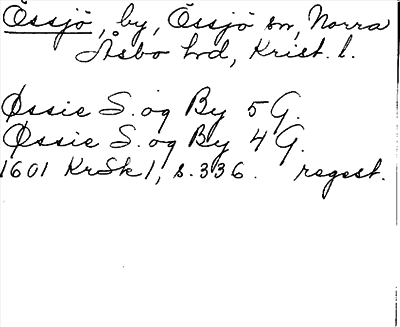 Össjö, by, Össjö sn, Norra
Åsbo hd, Krist. l.
Øssie S. og By 5 G.
Øssie S. og By 4 G.
1601 KrSk 1, s. 336. regest.